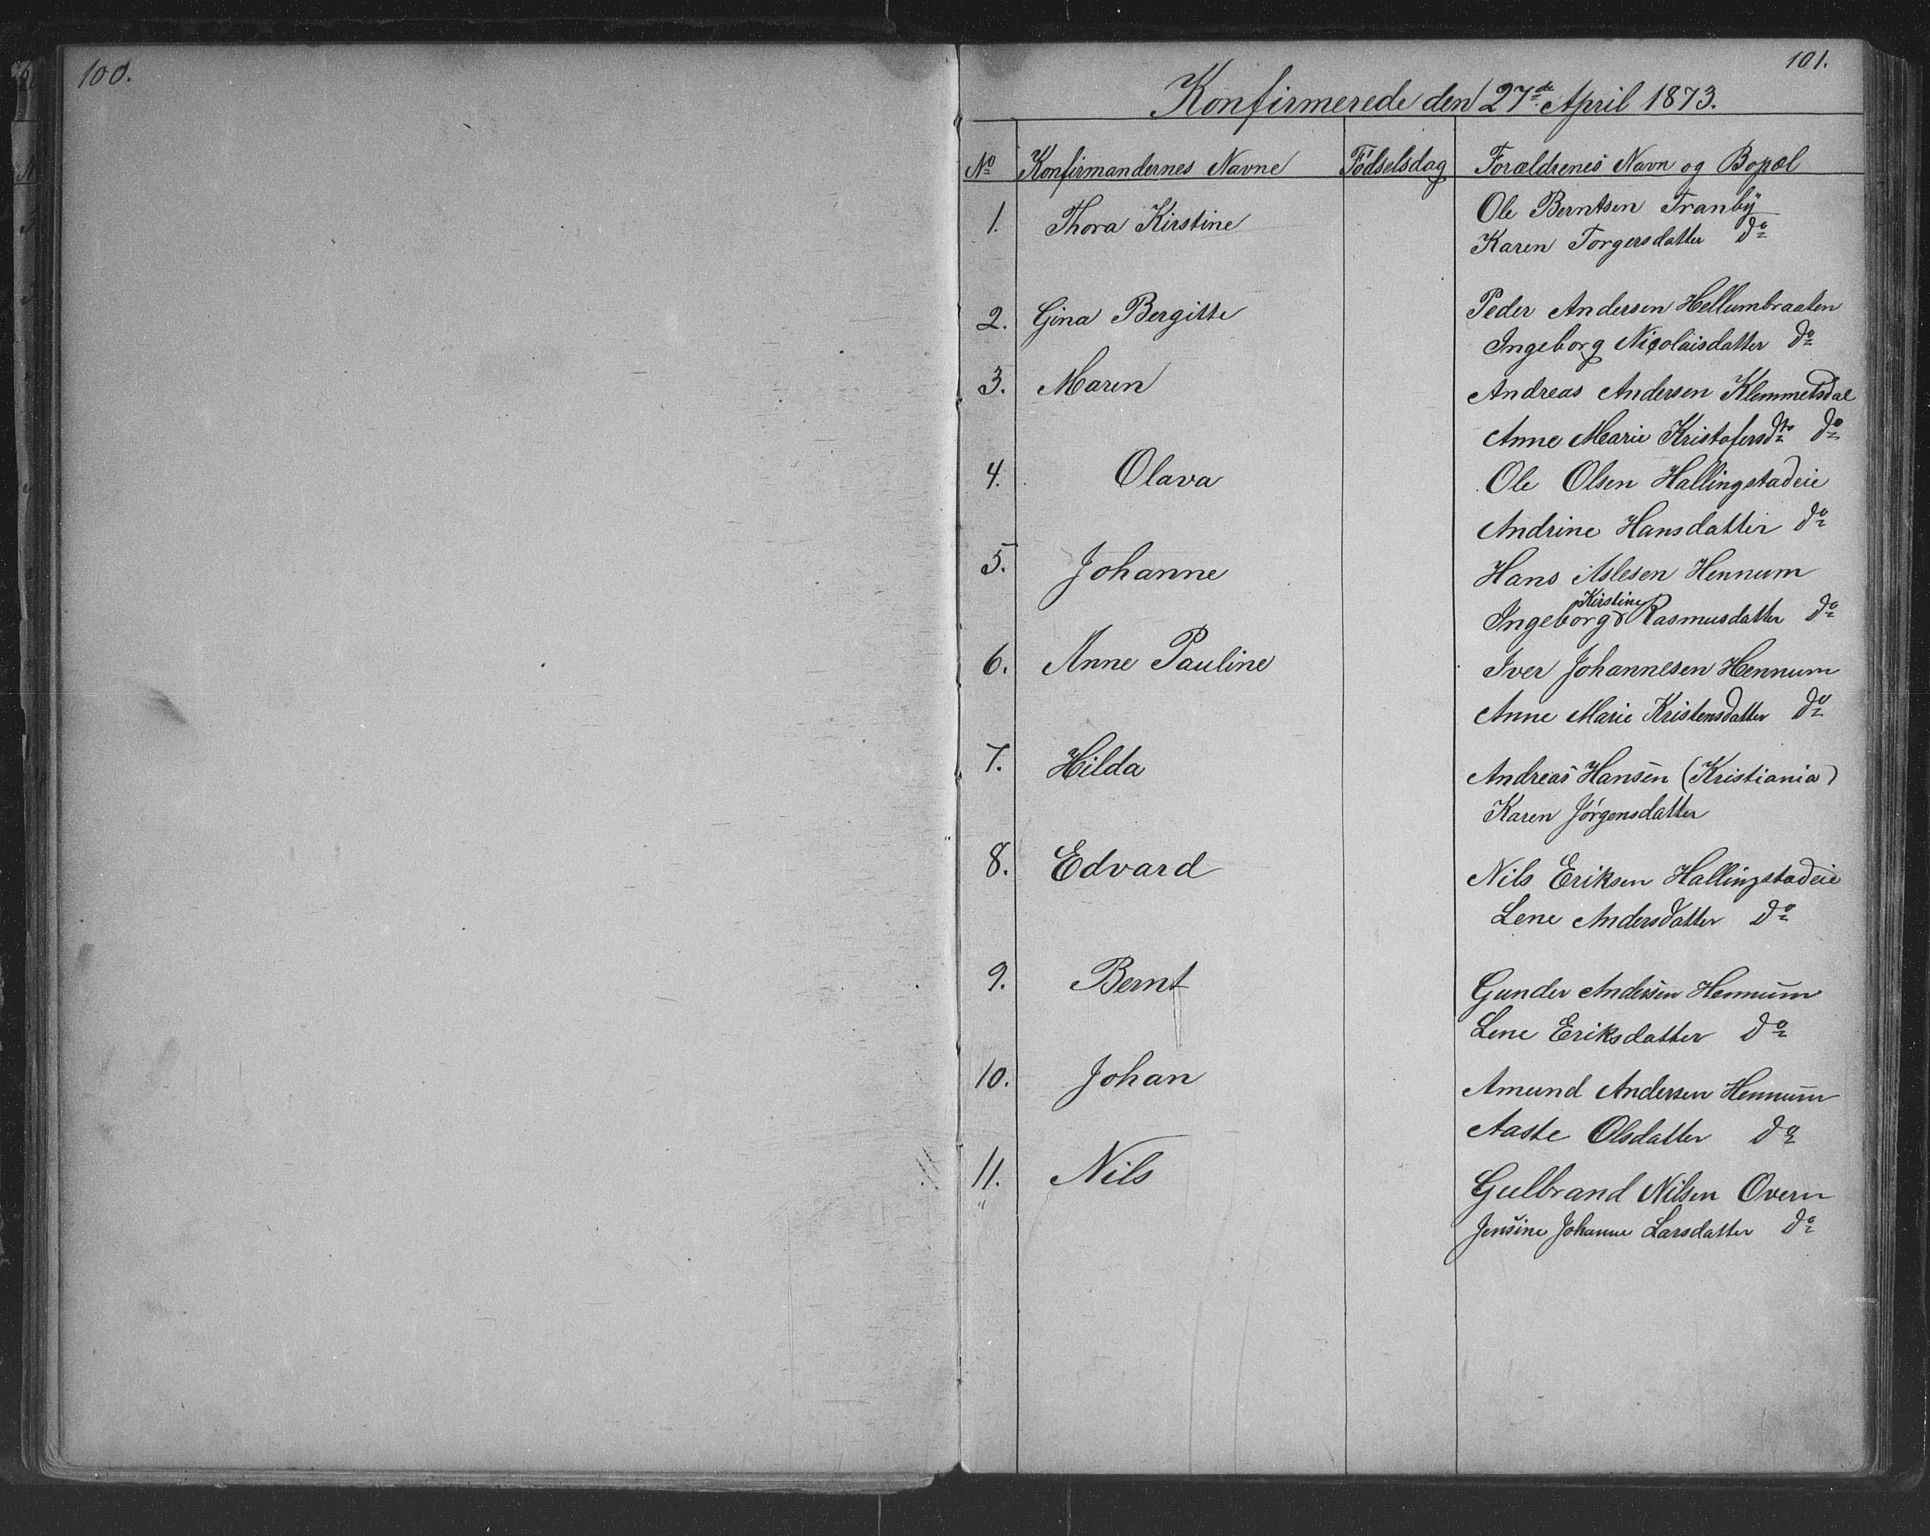 100.
101.
Konfirmerede den 27de April 1873.
No Konfirmandernes Navne Födselsdag Forældrenes Navn og Bopæl
1. Thora Kirstine Ole Berntsen Tranby
Karen Torgersdatter do
2. Gina Bergitte Peder Andersen Hellumbraaten
Ingeborg Nicolaisdatter do
3. Maren Andreas Andersen Klemmetsdal
Anne Marie Kristofersdtr do
4. Olava Ole Olsen Hallingstadeie
Andrine Hansdatter do
5. Johanne Hans Aslesen Hennum
Kirstine
Ingeborg Rasmusdatter do
6. Anne Pauline Iver Johannesen Hennum
Anne Marie Kristensdatter do
7. Hilda Andreas Hansen (Kristiania)
Karen Jörgensdatter
8. Edvard Nils Eriksen Hallingstadeie
Lene Andersdatter do
9. Bernt Gunder Andersen Hennum
Lene Eriksdatter do
10. Johan Amund Andersen Hennum
Aaste Olsdatter do
11. Nils Gulbrand Nilsen Overn
Jensine Johanne Larsdatter do